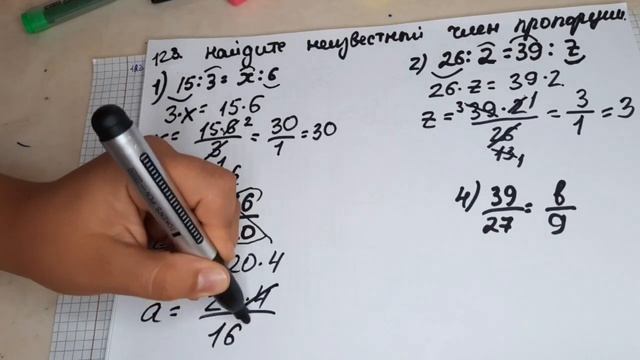 123. Найдите неизвестный член пропорции.
1) 15:3=x:6
3·x=15·6
= 15·6 2 / 3 1 = 30/1 = 30
20·4
a = 4 / 16
2) 26:2=39:z
26·z=39·2
z= 3 39·2 1 / 26 13 1 = 3/1 = 3
4) 39/27 = b/9